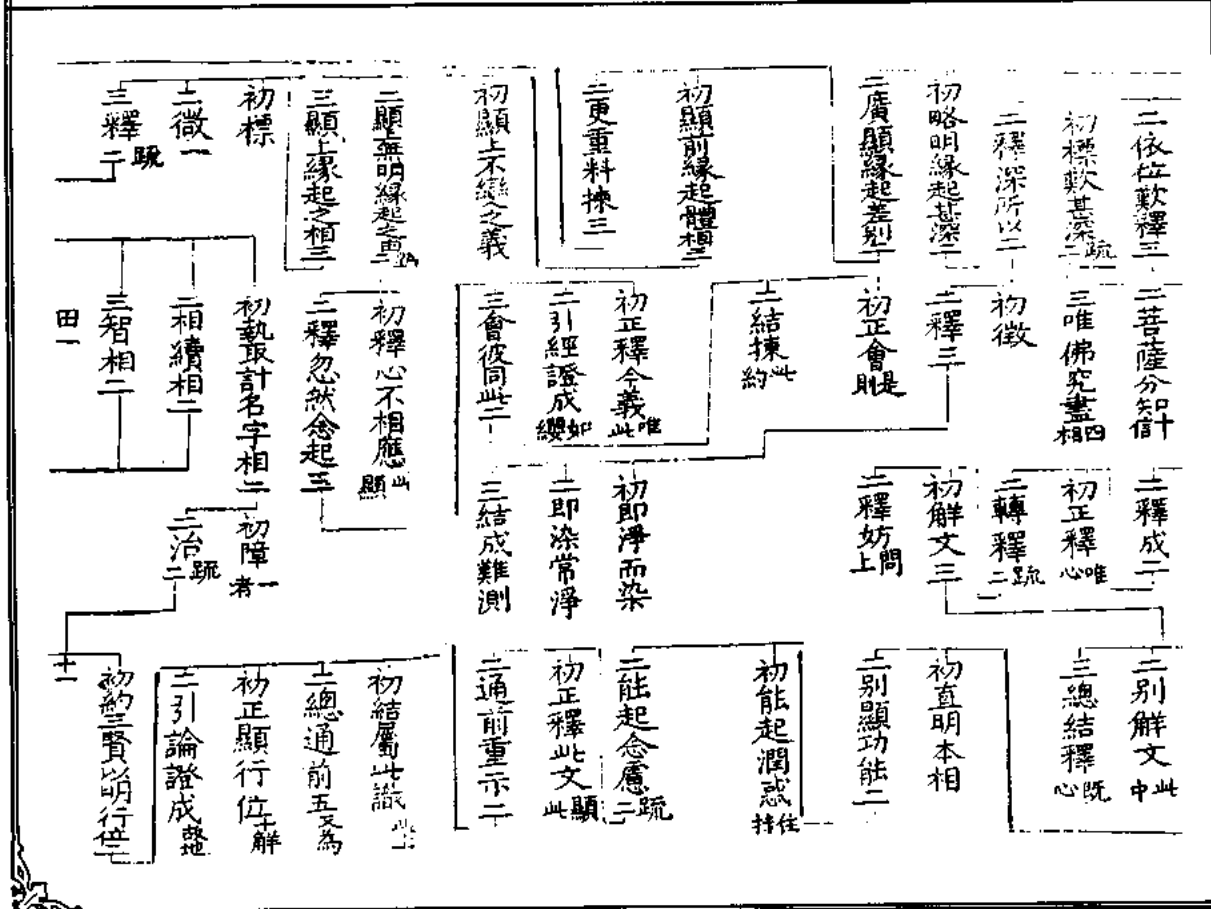 二依位歎釋三
初標歎甚深二疏
二釋深所以二
初略明緣起甚深二
二廣顯緣起差別二
初顯前緣起體相二
二更重料揀三
初顯上不變之義
二顯上無明緣起之由二
三顯上緣起之相三
初標
二徵一
三釋二疏
二菩薩分知信十
三唯佛究盡相四
初徵
二釋三
初正會則是
二結揀約此
初正釋今義此唯
二引經證成纓如
三會彼同此二
初釋心不相應顯此
二釋忽然念起三
初執取計名字相二
二相續相二
三智相二
田一
二釋成二
初正釋心唯
二轉釋二疏
初解文三
二釋妨上問
初即淨而染
二即染常淨
三結成難測
初障者一
二治二疏
二別解文中此
三總結釋心既
初直明本相
二別顯功能二
初能起潤惑持住
二能起念慮二疏
初正釋此文此顯
二通前重示二
初結屬此識
二總通前五為又
初正顯行位解十
二引論證成地
初約三賢以明行位二
十一